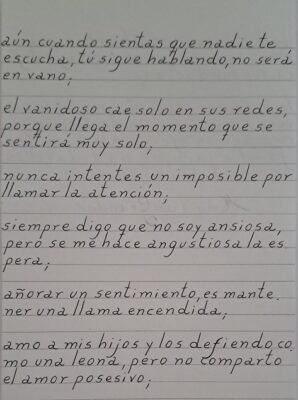 aún cuando sientas que nadie te
escucha, tú sigue hablando, no será
en vano;
el vanidoso cae solo en sus redes,
porque llega el momento que se
sentirá muy solo;
nunca intentes un imposible por
llamar la atención;
siempre digo que no soy ansiosa,
pero se me hace angustiosa la es
pera;
añorar un sentimiento, es mante.
ner una llama encendida;
amo a mis hijos y los defiendo co.
mo una leona, pero no comparto
el amor posesivo;